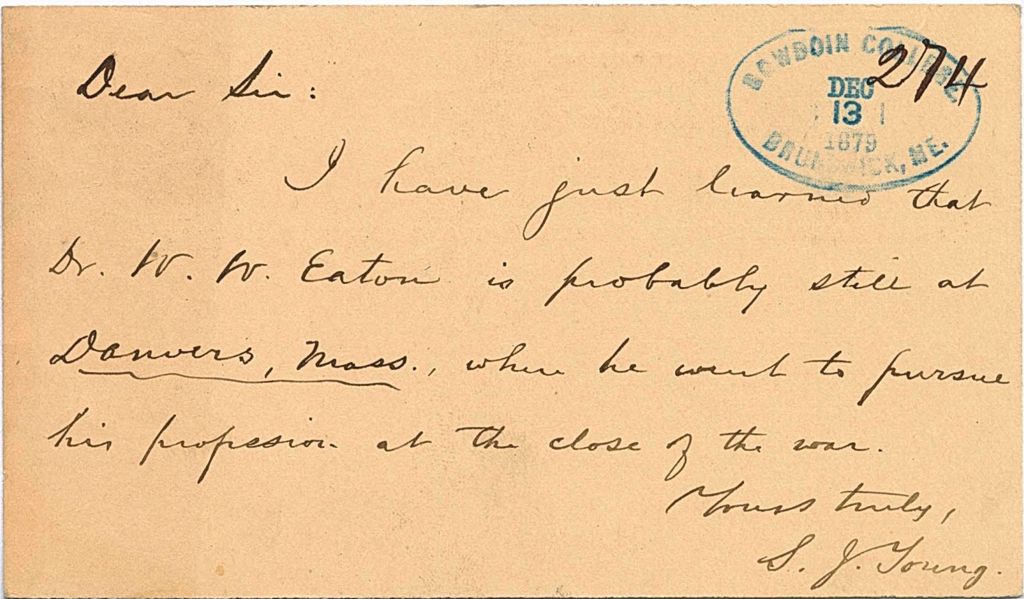 BOWDOIN COLLEGE
274
DEC
13
1879
BRUNSWICK, ME.
Dear Sir:
I have just learned that
Dr. W. W. Eaton is probably still at
Danvers, Mass., where he went to pursue
his profession at the close of the war.
Yours truly,
S. J. Young.